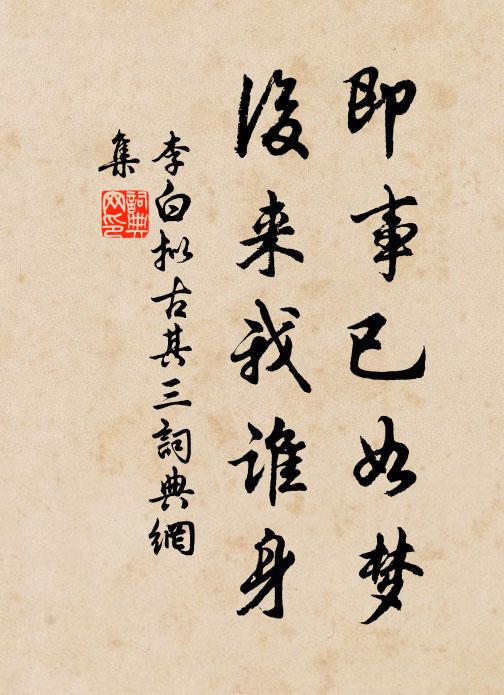 即事已如梦
後来我谁身
李白拟古其三詞典網
集
詞典网印